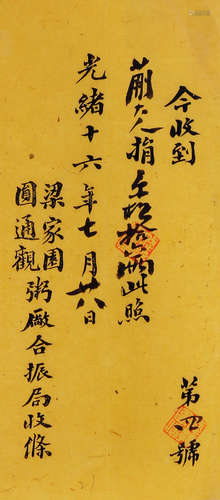 今收到
蕭大人捐銀拾兩此照
第四號
光緒十六年七月廿八日
梁家園
圓通觀
粥廠合振局收條